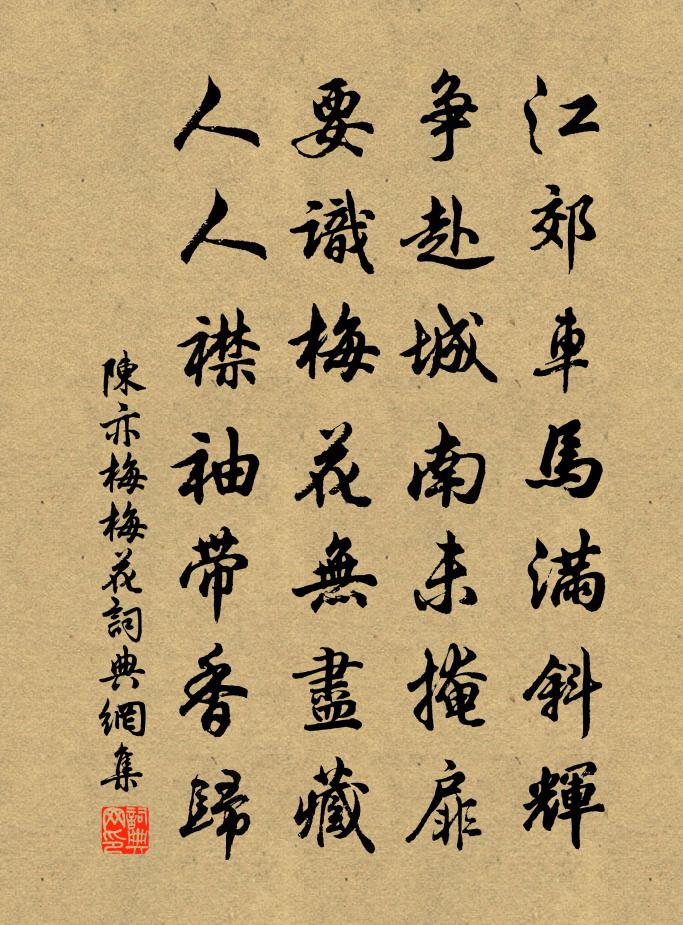 江郊車馬滿斜輝
争赴城南未掩扉
要識梅花無盡藏
人人襟袖帶香歸
陳亦梅梅花詞典網集
詞典網印